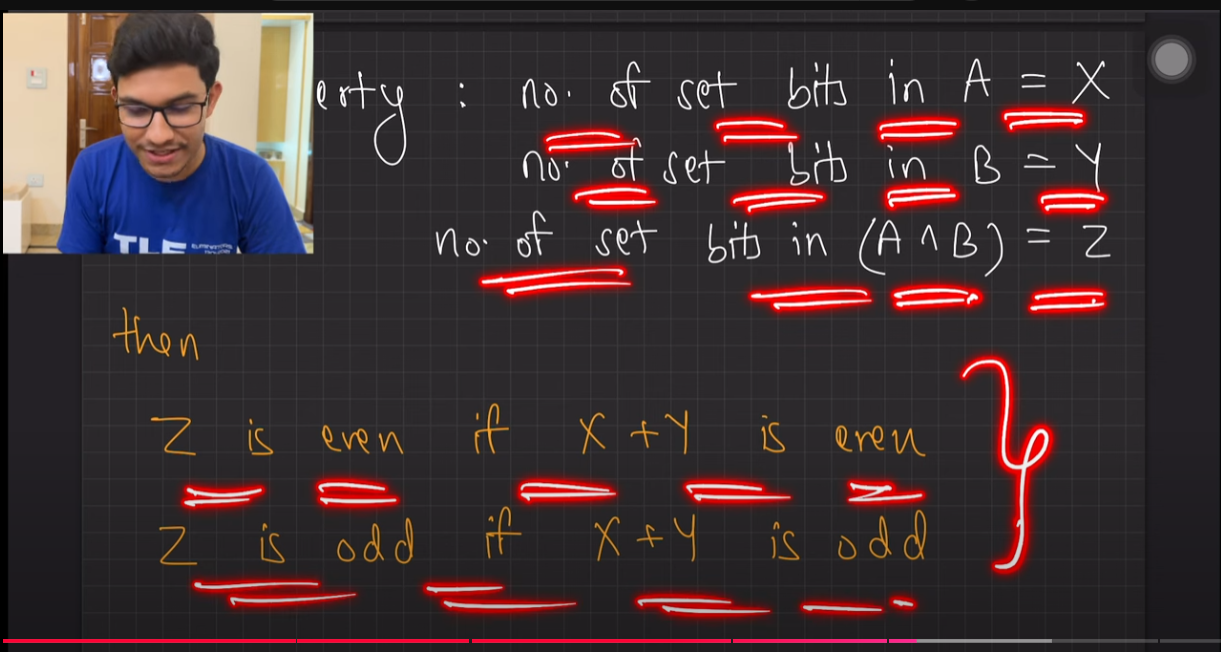 erty : no. of set bits in A = X
no. of set bits in B = Y
no. of set bits in (A ^ B) = Z
TLE
then
Z is even if X + Y is even
Z is odd if X + Y is odd